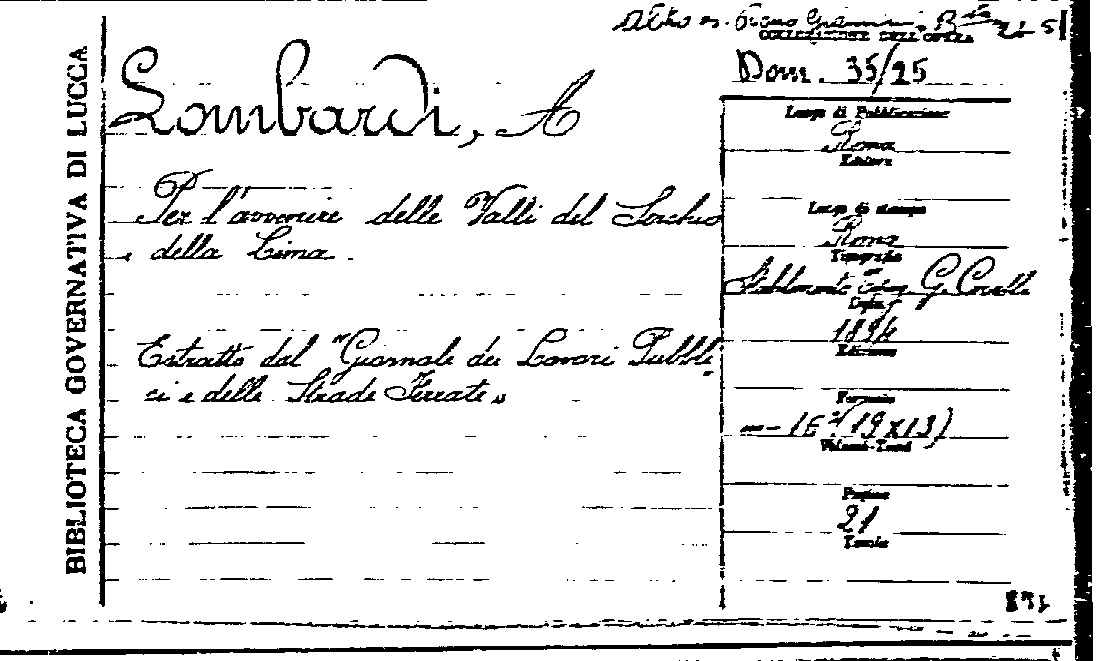 BIBLIOTECA GOVERNATIVA DI LUCCA
COLLOCAZIONE DELL'OPERA
Dom. 35/25
Lombardi, A
Per l'avvenire delle Valli del Serchio
e della Lima.
Estratto dal "Giornale dei Lavori Pubbli
ci e delle Strade Ferrate"
Luogo di Pubblicazione
Roma
Editore
Luogo di stampa
Roma
Tipografia
G. Civelli
Edizione
Formato
16° (19x13)
Volumi-Tomi
Pagine
21
Tavole